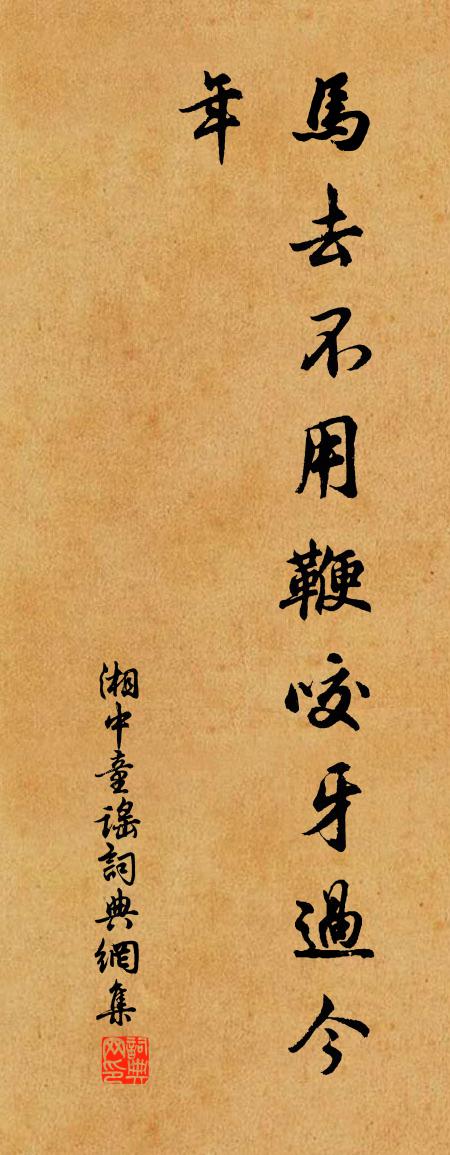 馬去不用鞭咬牙過今
年
湘中童謠詞典網集
詞典
網印